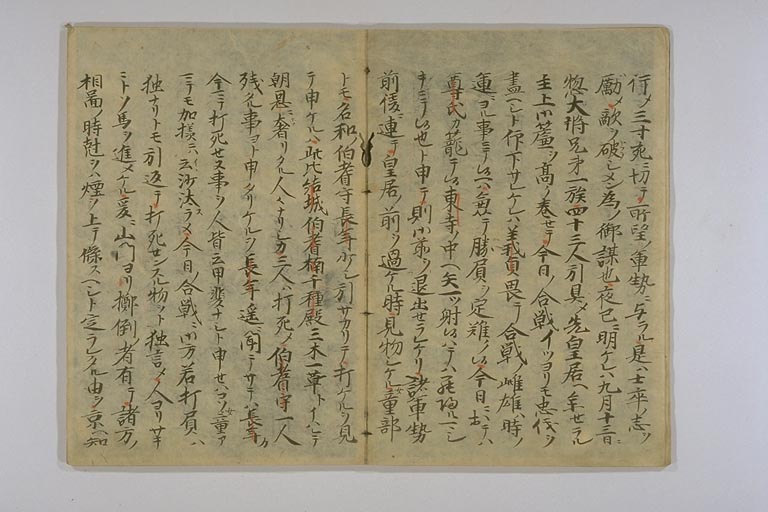 行メ三寸死ニ切テ所望ノ軍勢ニ与ラル是ハ士卒ノ志ヲ
勵メ敵ヲ破シメン為ノ御謀也夜已ニ明ケレハ九月十三日ニ
惣大将兄弟一族四十三人引具メ先皇居ヘ参セラル
主上小簾ヲ高ク巻セテ今日ノ合戦イツヨリモ忠侭ヲ
盡ヘシト仰下サレケレハ義貞畏テ合戦ノ雌雄ハ時ノ
運ニヨル事ニテ候ヘハ兼テ勝負ヲ定難ク候今日ニヲヒテハ
尊氏カ籠テ候東寺ノ中ヘ矢一ツ射候ハテハ罷帰ルマシ
キニテ候也ト申テ則御前ヲ退出セラレケリ諸軍勢
前後ニ連テ皇居ノ前ヲ過ケル時見物シケル童部
トモ名和伯耆守長年カ少シ引サカリテ打ケルヲ見
テ申ケルハ此比結城伯耆楠千種殿三木一草トイハレテ
朝恩ニ奢リタル人々ナリシカ三人ハ打死メ伯耆守一人
残タル事ヨト申タリケルヲ長年遥ニ聞テサテハ長年カ
今ニテ打死セヌ事ヲ人皆云甲斐ナシト申セハコソ女童ア
ニテモ加様ニハ云沙汰スラメ今日ノ合戦ニ御方若打負ハ
独ナリトモ引返テ打死センスル物ヲト独言メ人ヨリサキ
ニトソ馬ヲ進メケル爰ニ山門ヨリ擲倒者有テ諸方ノ
相圖ノ時尅ヲハ煙ヲ上テ條スヘシト定ラレタル由ヲ京ヘ知